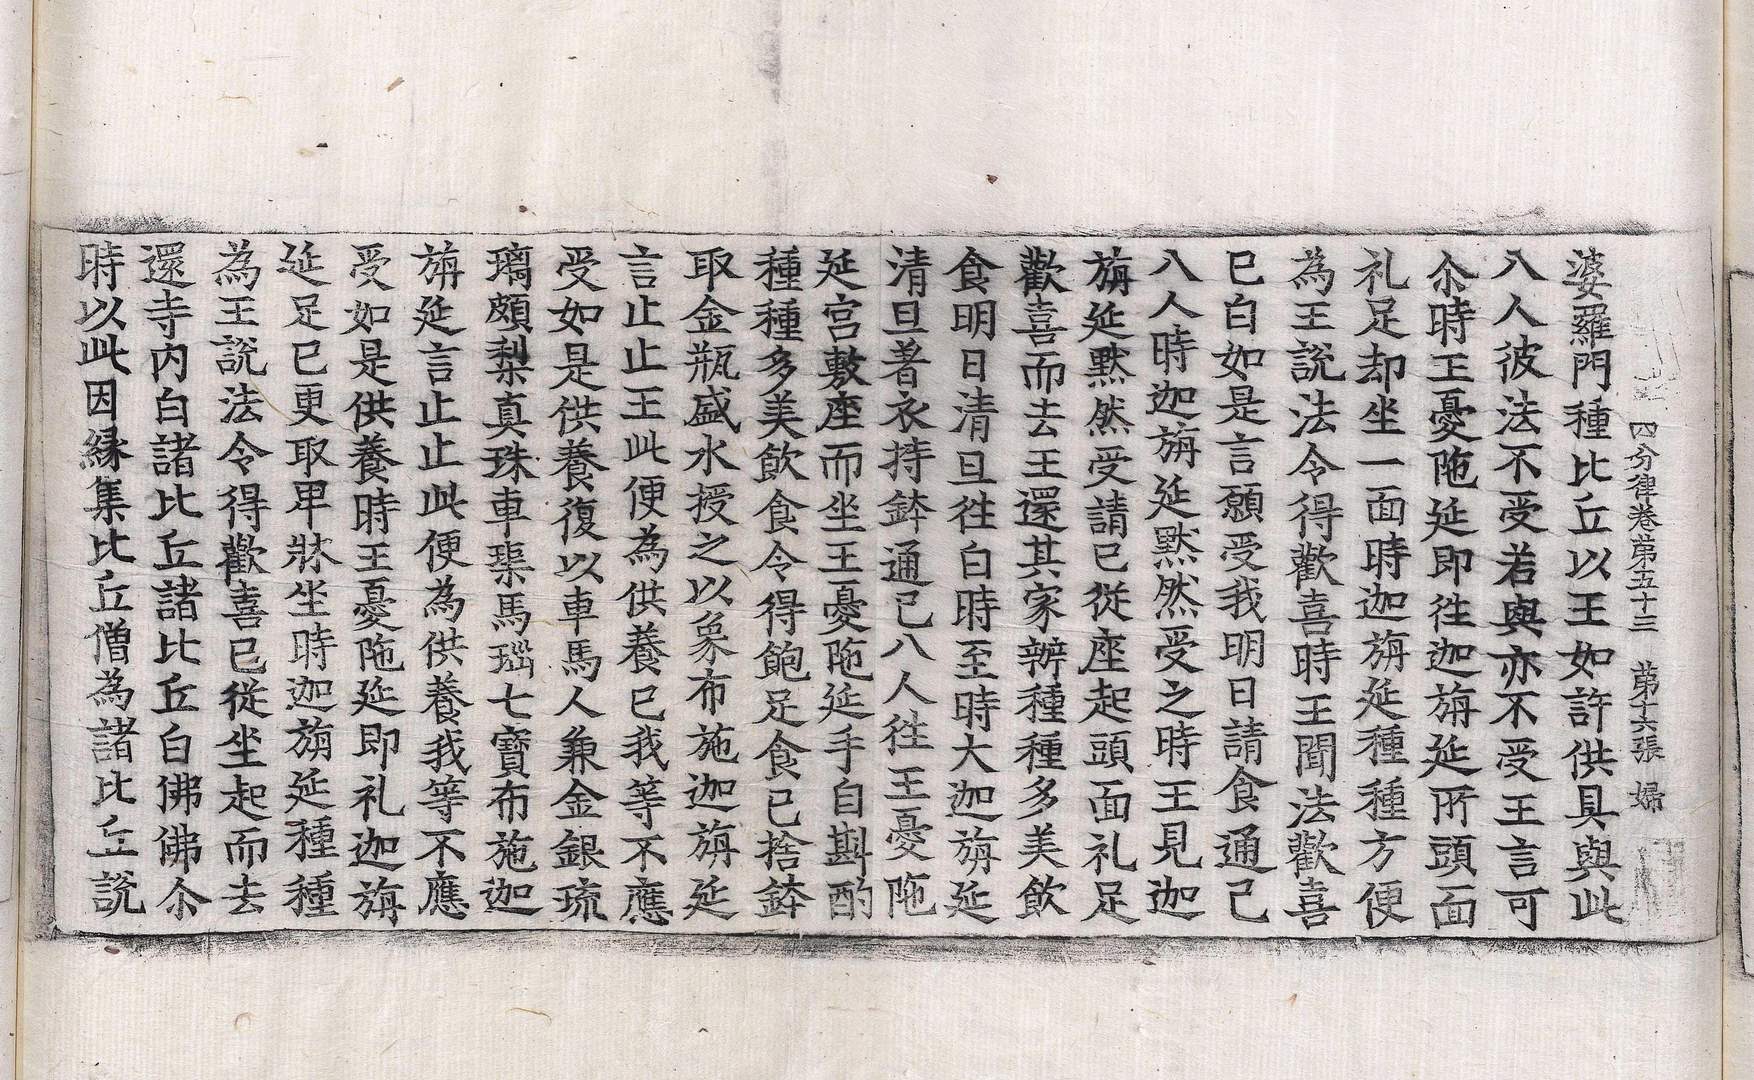 四分律卷第五十三　第十六張　婦
婆羅門種比丘以王如許供具與此
八人彼法不受若與亦不受王言可
尒時王憂陁延即往迦旃延所頭面
礼足却坐一面時迦旃延種種方便
為王說法令得歡喜時王聞法歡喜
已白如是言願受我明日請食通已
八人時迦旃延黙然受之時王見迦
旃延黙然受請已從座起頭面礼足
歡喜而去王還其家辦種種多美飲
食明日清旦往白時至時大迦旃延
清旦著衣持鉢通已八人往王憂陁
延宮敷座而坐王憂陁延手自斟酌
種種多美飲食令得飽足食已捨鉢
取金瓶盛水授之以象布施迦旃延
言止止王此便為供養已我等不應
受如是供養復以車馬人兼金銀琉
璃頗梨真珠車璖馬瑙七寶布施迦
旃延言止止此便為供養我等不應
受如是供養時王憂陁延即礼迦旃
延足已更取卑牀坐時迦旃延種種
為王說法令得歡喜已從坐起而去
還寺內白諸比丘諸比丘白佛佛尒
時以此因緣集比丘僧為諸比丘說